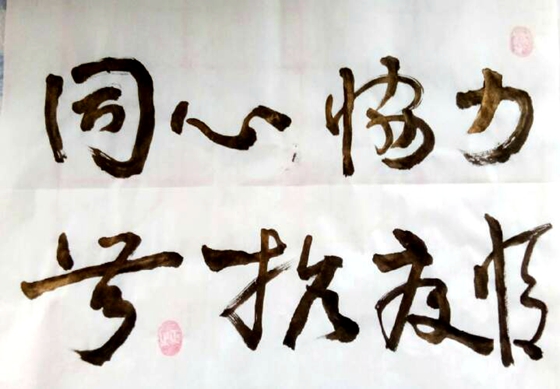 同心協力
共抗疫情